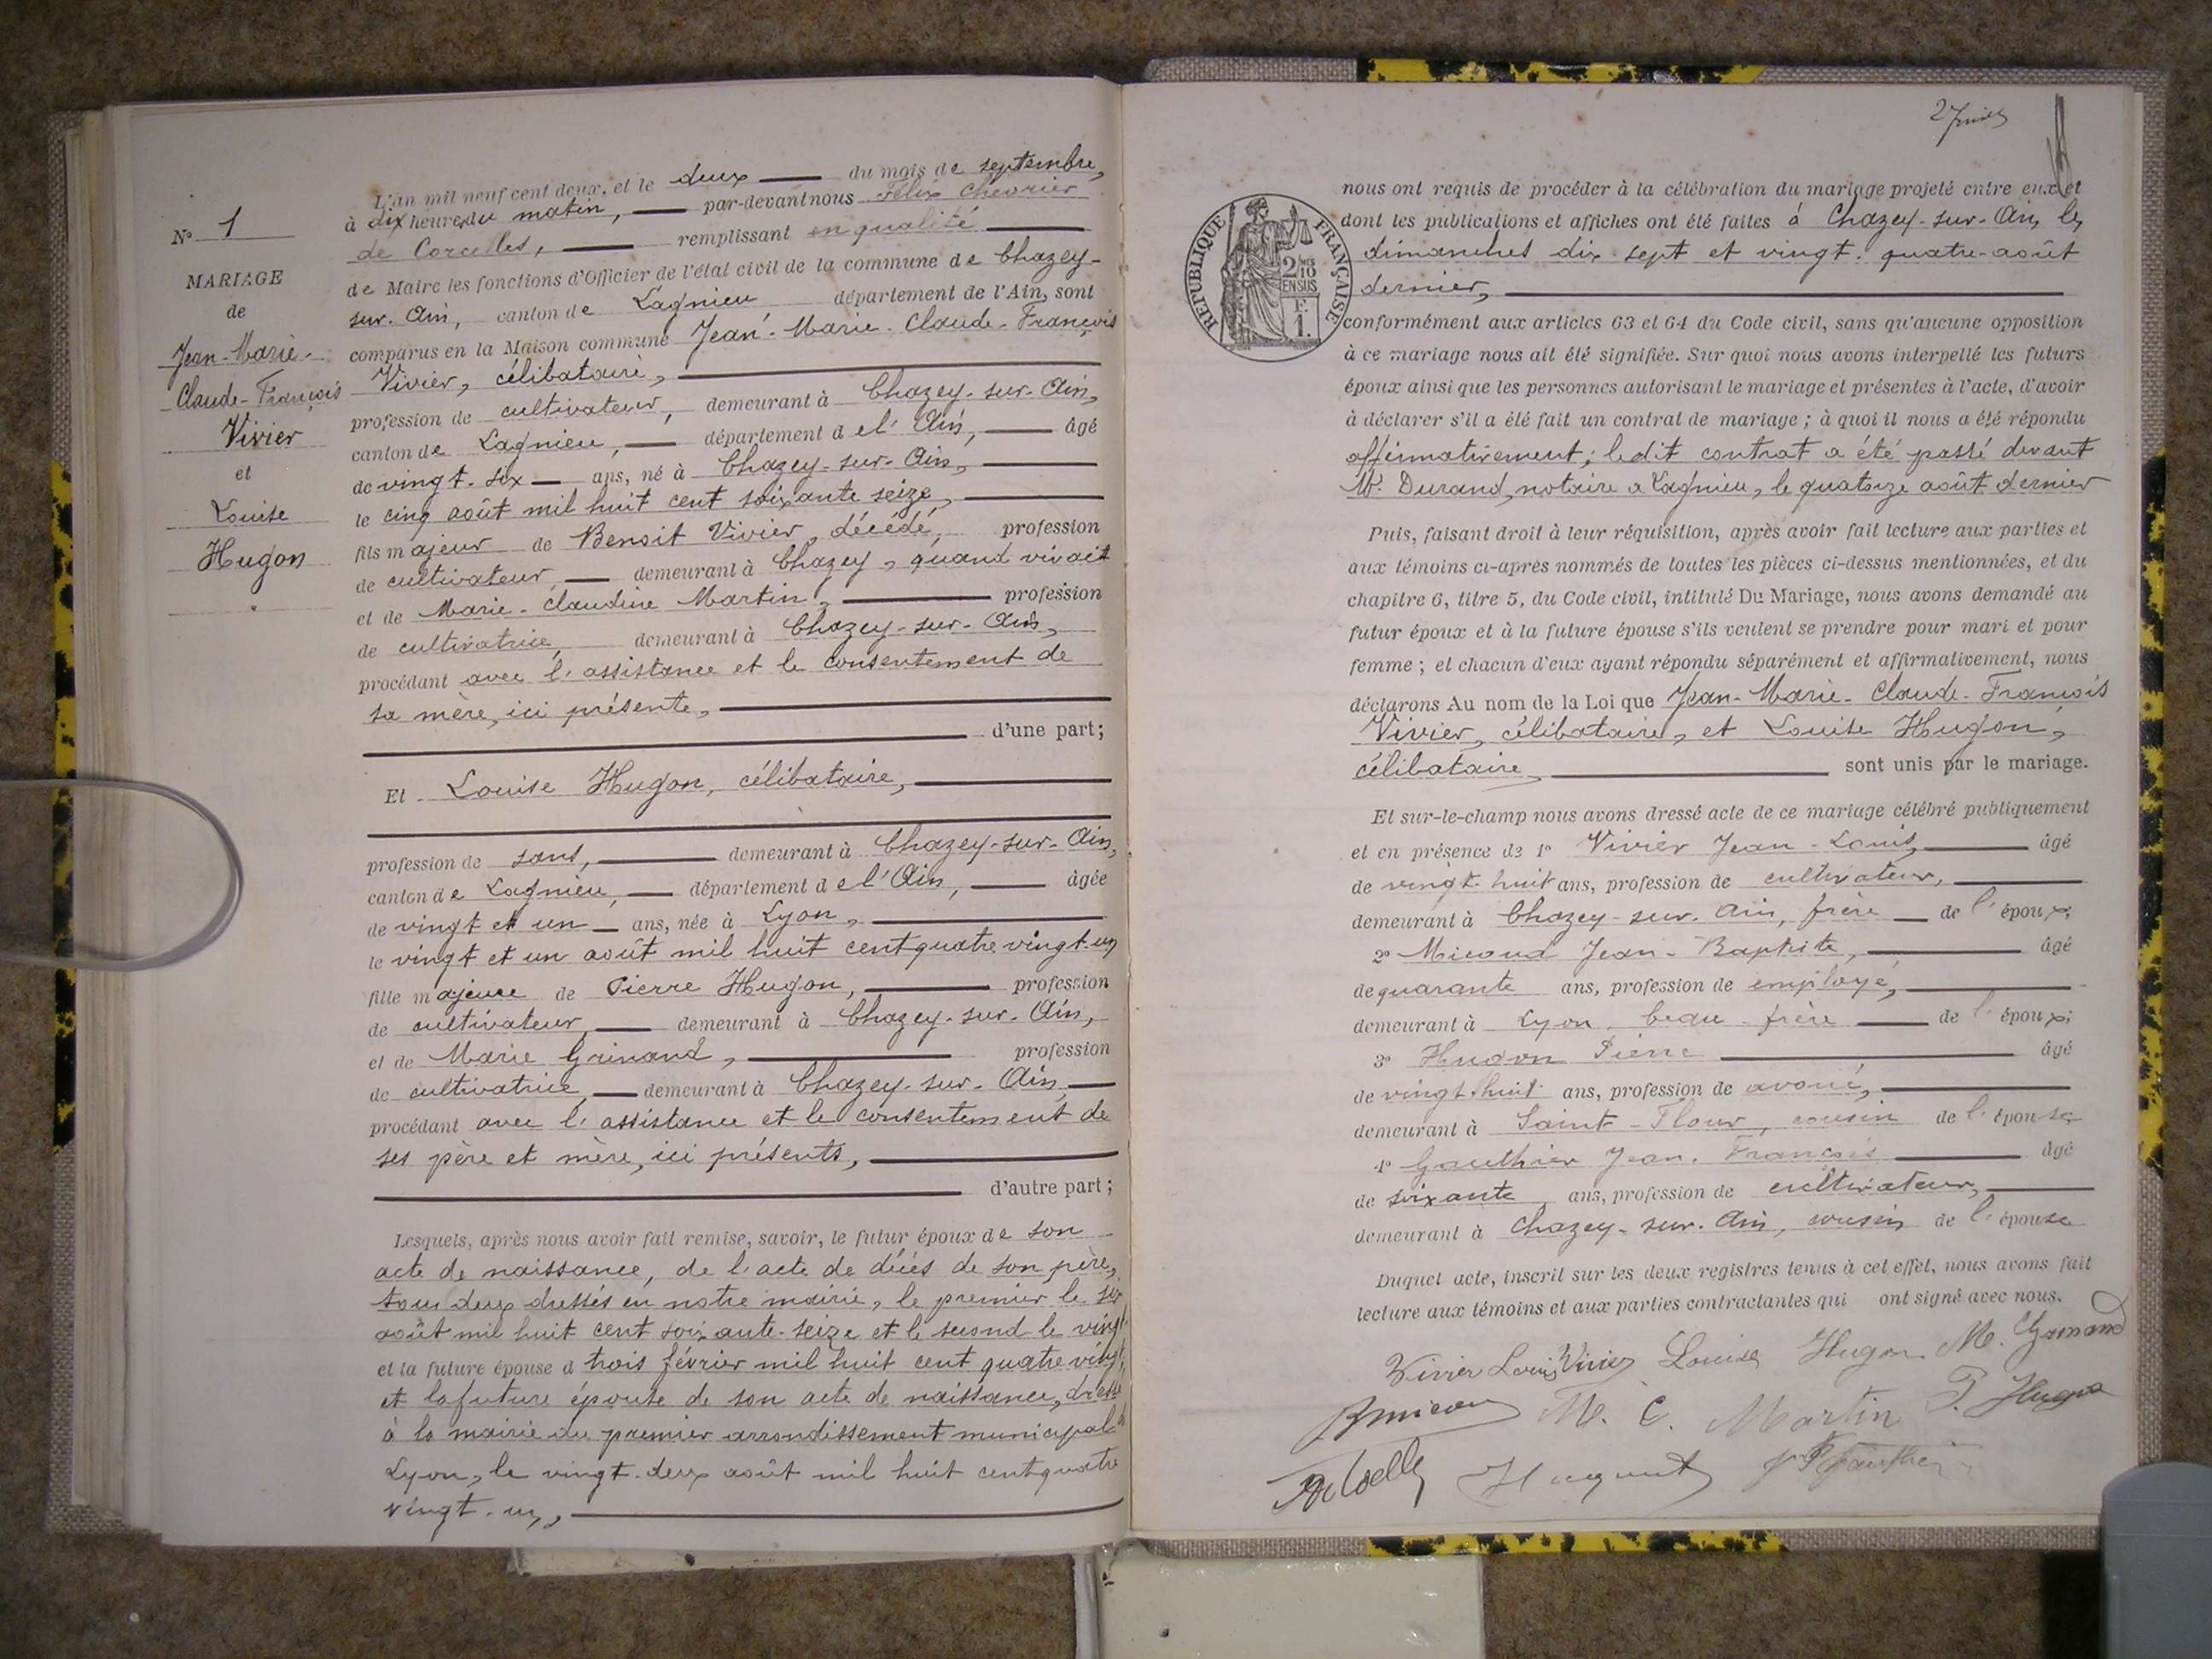 L'an mil neuf cent deux, et le deux du mois de septembre,
à dix heures du matin, par-devant nous Félix Chevrier
de Corcelles, remplissant en qualité
de Maire les fonctions d'Officier de l'état civil de la commune de Chazey-
sur-Ain, canton de Lagnieu département de l'Ain, sont
comparus en la Maison commune Jean-Marie-Claude-François
Vivier, célibataire,
profession de cultivateur, demeurant à Chazey-sur-Ain,
canton de Lagnieu, département de l'Ain, âgé
de vingt-six ans, né à Chazey-sur-Ain,
le cinq août mil huit cent soixante seize,
fils majeur de Benoit Vivier, décédé, profession
de cultivateur, demeurant à Chazey, quand vivait
et de Marie-Claudine Martin, profession
de cultivatrice, demeurant à Chazey-sur-Ain,
procédant avec l'assistance et le consentement de
sa mère, ici présente,
d'une part;
Et Louise Hugon, célibataire,
profession de sans, demeurant à Chazey-sur-Ain,
canton de Lagnieu, département de l'Ain, âgée
de vingt et un ans, née à Lyon,
le vingt et un août mil huit cent quatre vingt-un
fille majeure de Pierre Hugon, profession
de cultivateur, demeurant à Chazey-sur-Ain,
et de Marie Grinand, profession
de cultivatrice, demeurant à Chazey-sur-Ain,
procédant avec l'assistance et le consentement de
ses père et mère, ici présents,
d'autre part;
Lesquels, après nous avoir fait remise, savoir, le futur époux de son
acte de naissance, de l'acte de décès de son père,
tous deux dressés en notre mairie, le premier le six
août mil huit cent soixante-seize et le second le vingt
et la future épouse d trois février mil huit cent quatre vingt,
et la future épouse de son acte de naissance, dressé
à la mairie du premier arrondissement municipal de
Lyon, le vingt-deux août mil huit cent quatre
vingt-un,
No 1
MARIAGE
de
Jean-Marie-
Claude-François
Vivier
et
Louise
Hugon
2
RÉPUBLIQUE FRANÇAISE
2/10
EN SUS
F.
1.
nous ont requis de procéder à la célébration du mariage projeté entre eux et
dont les publications et affiches ont été faites à Chazey-sur-Ain, les
dimanches dix-sept et vingt-quatre-août
dernier,
conformément aux articles 63 et 64 du Code civil, sans qu'aucune opposition
à ce mariage nous ait été signifiée. Sur quoi nous avons interpellé les futurs
époux ainsi que les personnes autorisant le mariage et présentes à l'acte, d'avoir
à déclarer s'il a été fait un contrat de mariage; à quoi il nous a été répondu
affirmativement; ledit contrat a été passé devant
Me Durand, notaire a Lagnieu, le quatorze août dernier
Puis, faisant droit à leur réquisition, après avoir fait lecture aux parties et
aux témoins ci-après nommés de toutes les pièces ci-dessus mentionnées, et du
chapitre 6, titre 5, du Code civil, intitulé Du Mariage, nous avons demandé au
futur époux et à la future épouse s'ils veulent se prendre pour mari et pour
femme; et chacun d'eux ayant répondu séparément et affirmativement, nous
déclarons Au nom de la Loi que Jean-Marie-Claude-François
Vivier, célibataire, et Louise Hugon,
célibataire, sont unis par le mariage.
Et sur-le-champ nous avons dressé acte de ce mariage célébré publiquement
et en présence de 1º Vivier Jean-Louis, âgé
de vingt-huit ans, profession de cultivateur,
demeurant à Chazey-sur-Ain, frère de l'époux;
2º Micoud Jean-Baptiste, âgé
de quarante ans, profession de employé,
demeurant à Lyon, beau-frère de l'époux;
3º Hugon Pierre âgé
de vingt-huit ans, profession de avoué,
demeurant à Saint-Flour, cousin de l'épouse;
4º Gauthier Jean-François âgé
de soixante ans, profession de cultivateur,
demeurant à Chazey-sur-Ain, cousin de l'épouse
Duquel acte, inscrit sur les deux registres tenus à cet effet, nous avons fait
lecture aux témoins et aux parties contractantes qui ont signé avec nous.
Vivier Louis Vivier Louise Hugon M. Grinand
M. C. Martin P. Hugon